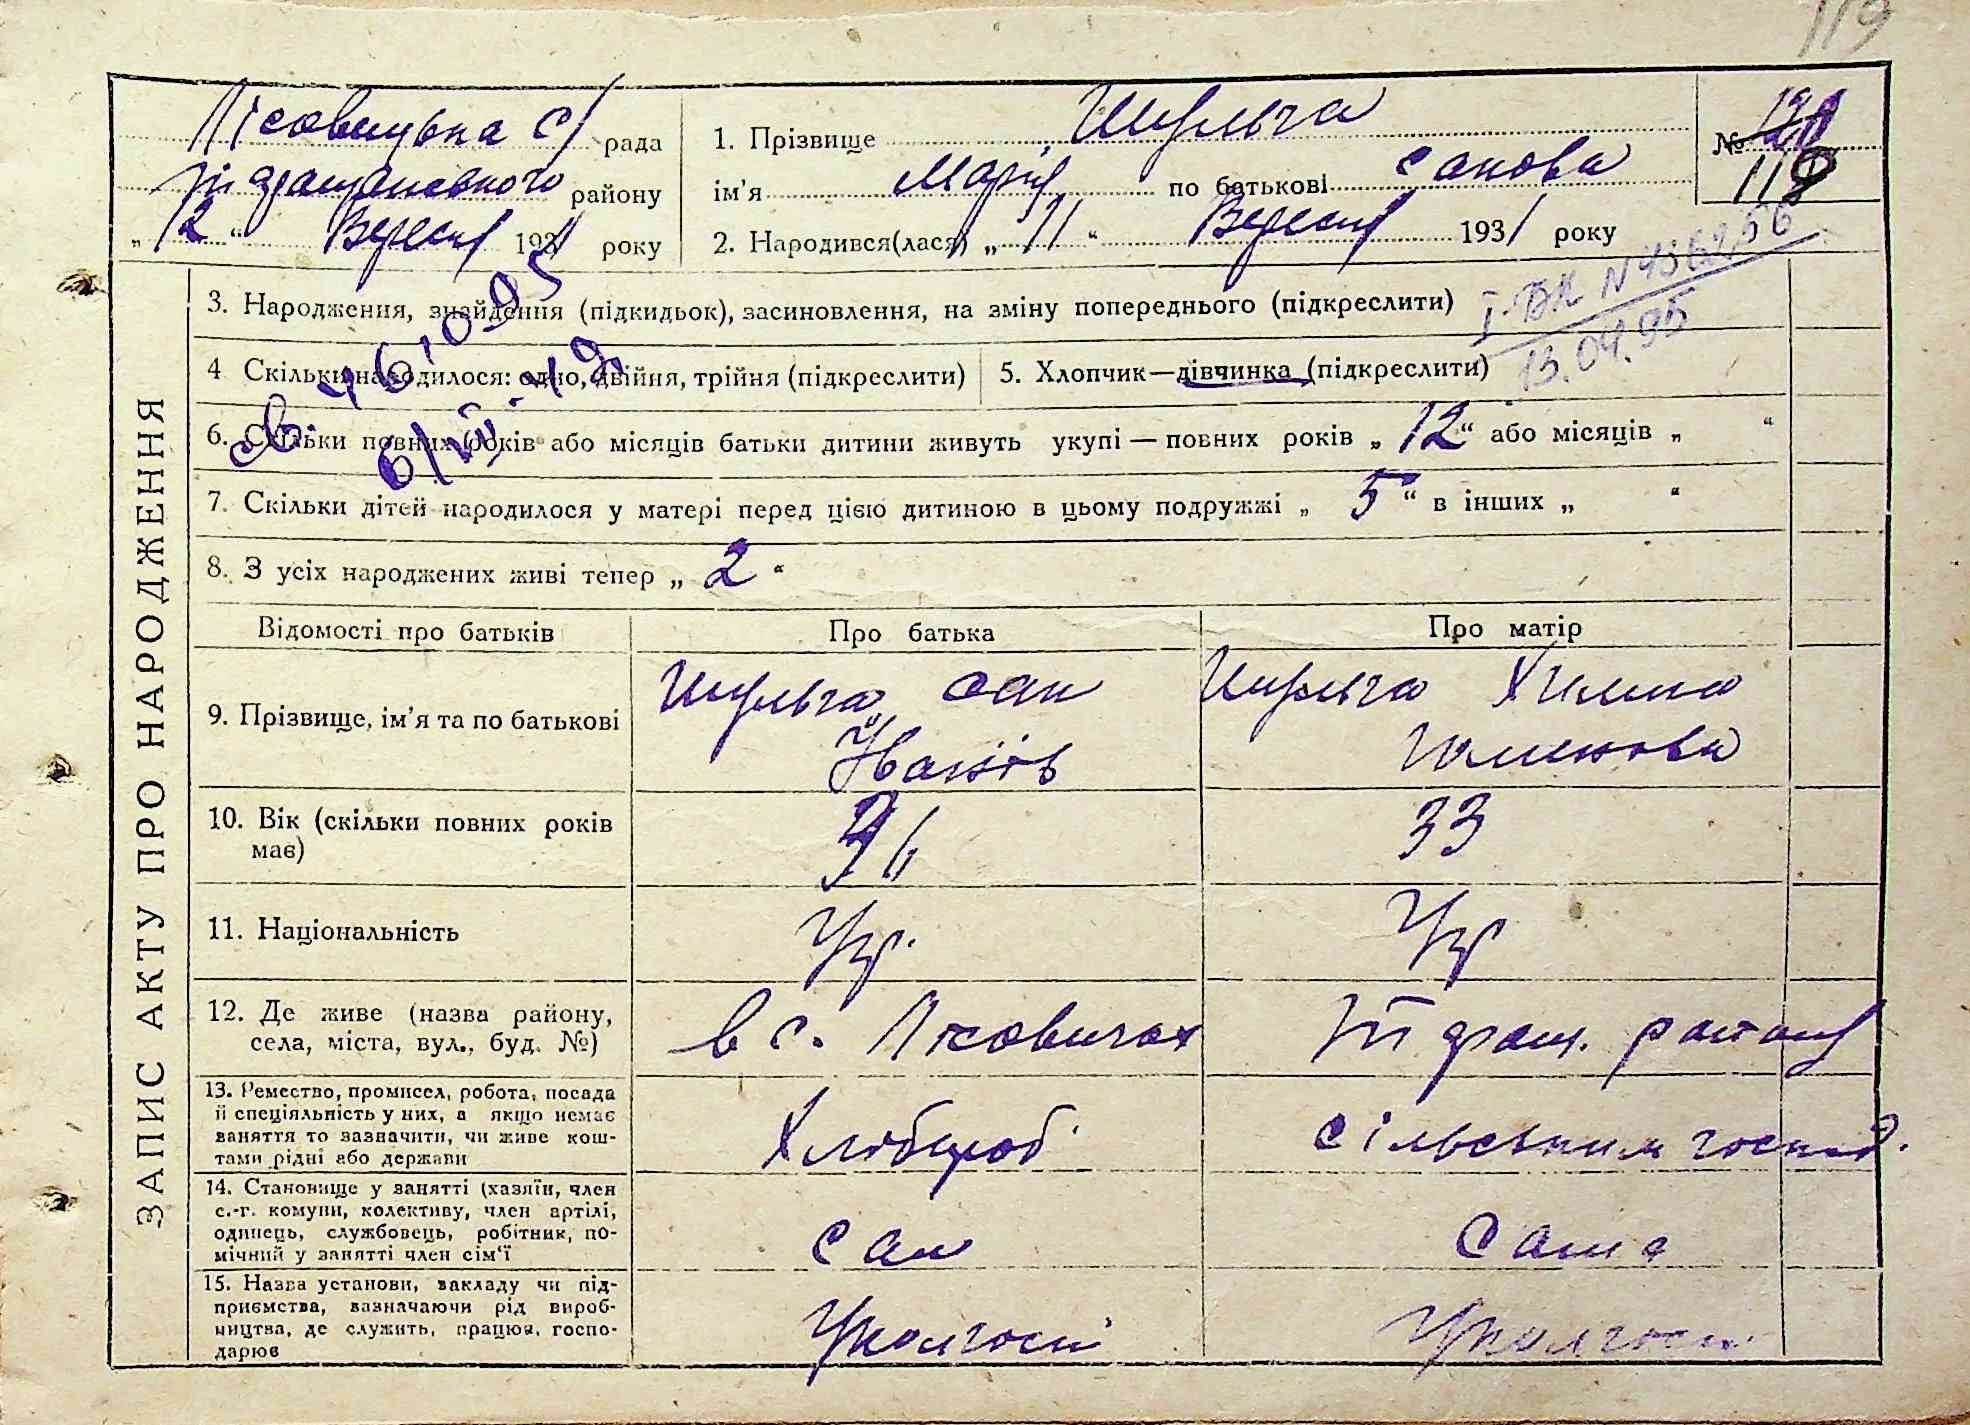 119
Лісовицька с/рада
Підгайського району
1. Прізвище Шульга
ім'я Марія по батькові
№ 121
119
„12“ Вересня 1931 року
2. Народився(лася) „11“ Вересня 1931 року
І-БК N 436256
13.04.95
3. Народження, знайдення (підкидьок), засиновлення, на зміну попереднього (підкреслити)
4 Скільки народилося: одно, двійня, трійня (підкреслити)
5. Хлопчик—дівчинка (підкреслити)
6. Скільки повних років або місяців батьки дитини живуть укупі — повних років „12“ або місяців „ “
7. Скільки дітей народилося у матері перед цією дитиною в цьому подружжі „5“ в інших „ “
8. З усіх народжених живі тепер „2“
ЗАПИС АКТУ ПРО НАРОДЖЕННЯ
Відомості про батьків
Про батька
Про матір
9. Прізвище, ім'я та по батькові
Шульга
Шульга
10. Вік (скільки повних років
має)
33
11. Національність
Укр.
Укр
12. Де живе (назва району,
села, міста, вул., буд. №)
в с. Лісовичах
району
13. Ремество, промисел, робота, посада
й спеціяльність у них, а якщо немає
заняття то зазначити, чи живе кош-
тами рідні або держави
Хлібороб
сільським господ.
14. Становище у занятті (хазяїн, член
с.-г. комуни, колективу, член артілі,
одинець, службовець, робітник, по-
мічний у занятті член сім'ї
сам
сама
15. Назва установи, закладу чи під-
приємства, зазначаючи рід вироб-
ництва, де служить, працює, госпо-
дарює
У колгоспі
У колгоспі